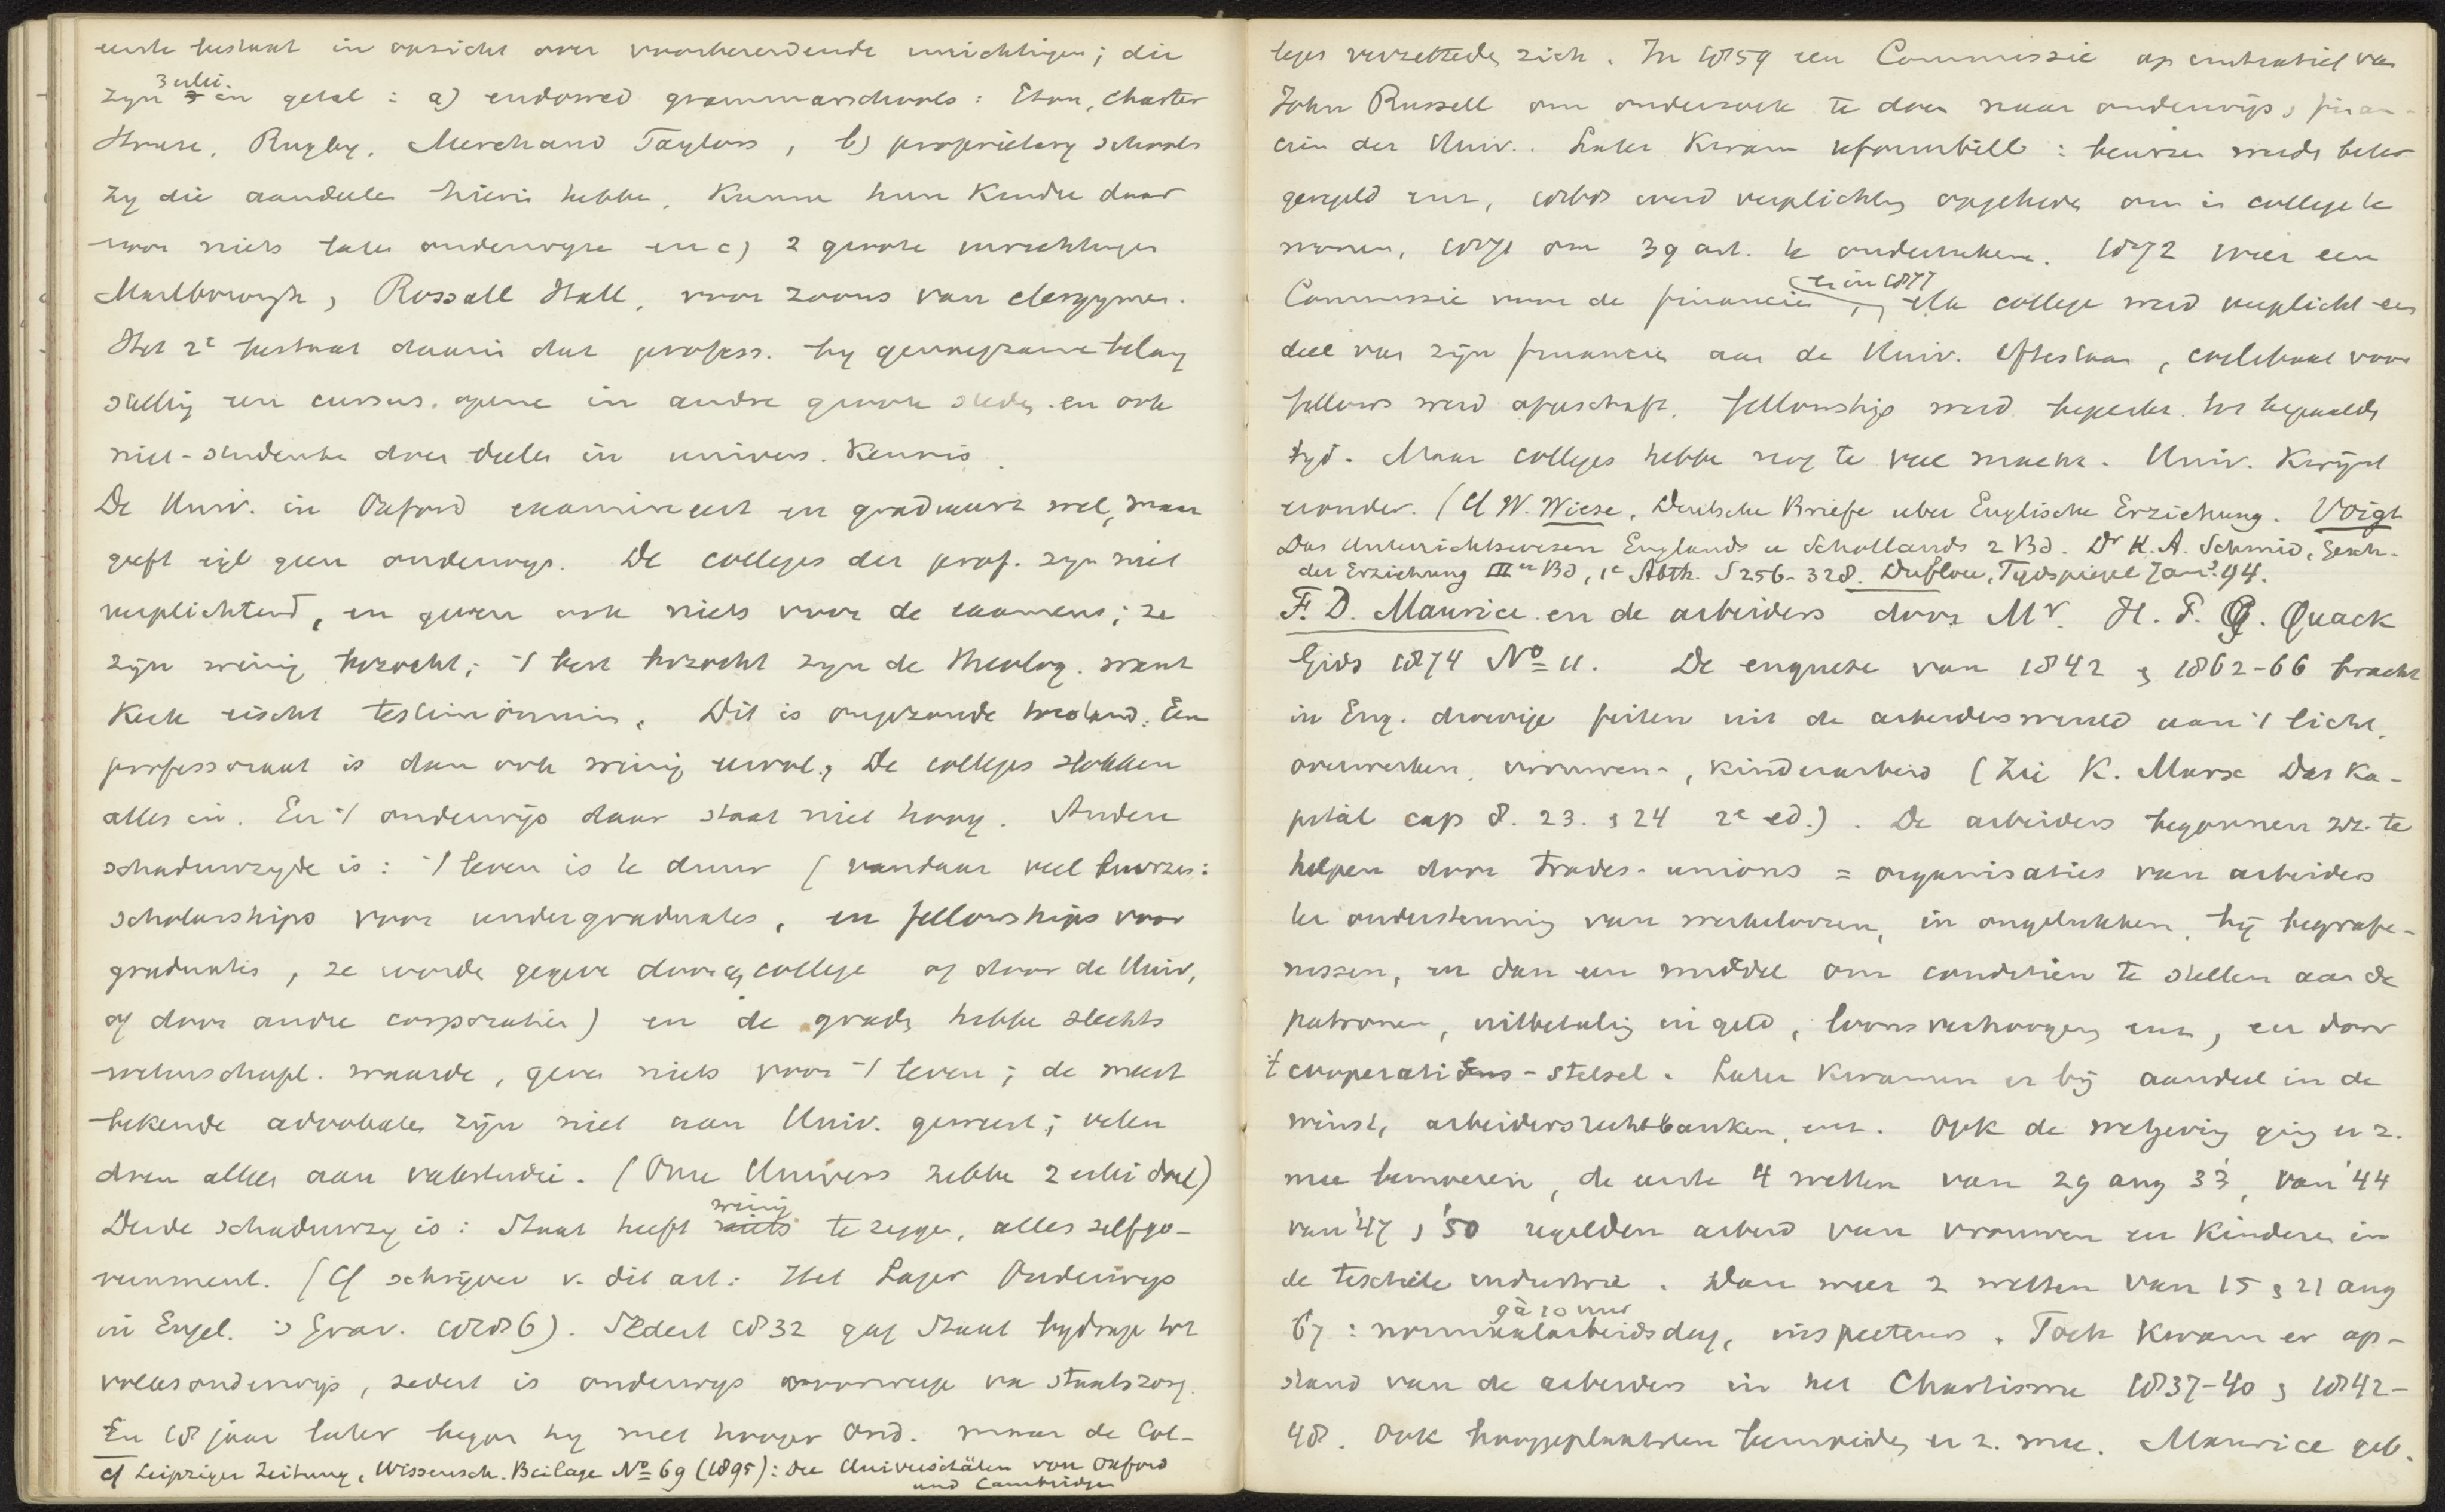 eerste bestaat in opzicht over voorbereidende inrichtingen; die
zijn 3 erlei in getal: a) endowed grammarschools: Eton, Charter
House, Rugby, Merchand Taylors, b) proprietary schools
zij die aandeelen hierin hebben, kunnen hun kinderen daar
voor niets laten onderwijzen en c) 2 groote inrichtingen
Marlborough, Rossall Hall, voor zoons van clergymen.
Het 2e bestaat daarin dat profess. bij genoegzame belang
stelling een cursus openen in andre groote steden en ook
niet-studenten doen deelen in univers. kennis.
De Univ. in Oxford examineert en gradueert wel, maar
geeft eigl geen onderwijs. De colleges der prof. zijn niet
verplichtend, en geven ook niets voor de examens; ze
zijn weinig bezocht; 't best bezocht zijn de theolog. want
Kerk eischt testimonium. Dit is ongezonde toestand. Een
professoraat is dan ook weinig eervol. De colleges slokken
alles in. En 't onderwijs daar staat niet hoog. Andere
schaduwzijde is: 't leven is te duur (vandaar veel beurzen:
scholarships voor undergraduates, en fellowships voor
graduates, ze worden gegeven door college of door de Univ,
of door andre corporaties) en de graden hebben slechts
wetenschapl. waarde, geven niets voor 't leven; de meest
bekende advokaten zijn niet aan Univ. geweest; velen
doen alles aan vakstudie. (Onze Univers hebben 2 erlei doel)
Derde schaduwzij is: Staat heeft weinig te zeggen, alles selfgo-
vernment. (Cf schrijver v. dit art: Het Lager Onderwijs
in Engel. 's Grav. 1886). Sedert 1832 gaf Staat bijdrage tot
volksonderwijs, sedert is onderwijs voorwerp van staatszorg.
En 18 jaar later begon hij met hooger Ond. maar de Col-
cf Leipziger Zeitung, Wissensch. Beilage No 69 (1895): Die Universitäten von Oxford
und Cambridge
leges verzetteden zich. In 1859 een Commissie op initiatief van
John Russell om onderzoek te doen naar onderwijs, finan-
ciën der Univ. Later kwam reformbill: beurzen werden beter
geregeld enz, 1868 werd verplichting opgeheven om in college te
wonen, 1871 om 39 art. te onderteekenen. 1872 weer een
Commissie voor de financiën en in 1877, elk college werd verplicht een
deel van zijn financiën aan de Univ. aftestaan, coelibaat voor
fellows werd afgeschaft, fellowships werd beperkt tot bepaalde
tijd. Maar colleges hebben nog te veel macht. Univ. kwijnt
eronder. (Cf W. Wiese, Deutsche Briefe uber Englische Erziehung. Voigt
Das Unterrichtswesen Englands u Schottlands 2 Bd. Dr K. A. Schmid, Gesch.
der Erziehung IIIer Bd, 1e Abth. S 256-328. Duflou, Tijdspiegel Jan. 94.
F. D. Maurice en de arbeiders door Mr. H. P. G. Quack
Gids 1874 No 11. De enquete van 1842 & 1862-66 bracht
in Eng. droevige feiten uit de arbeiderswereld aan 't licht,
overwerken, vrouwen-, kinderarbeid (Zie K. Marx Das Ka-
pital cap 8. 23. & 24 2e ed.). De arbeiders begonnen zz. te
helpen door trades-unions = organisaties van arbeiders
ter ondersteuning van werkeloozen, in ongelukken, bij begrafe-
nissen, en dan een middel om conditiën te stellen aan de
patronen, uitbetaling in geld, loonsverhooging enz, en door
't cooperatie-stelsel. Later kwamen er bij aandeel in de
winst, arbeidersrechtbanken, enz. Ook de wetgeving ging er z.
mee bemoeien, de eerste 4 wetten van 29 aug 33, van '44
van '47 & '50 regelden arbeid van vrouwen en kinderen in
de textiele industrie. Dan weer 2 wetten van 15 & 21 aug
67: normaalarbeidsdag, 9 à 10 uur inspecteurs. Toch kwam er op-
stand van de arbeiders in het Chartisme 1837-40 & 1842-
48. Ook hooggeplaatsten bemoeiden er z. mee. Maurice geb.